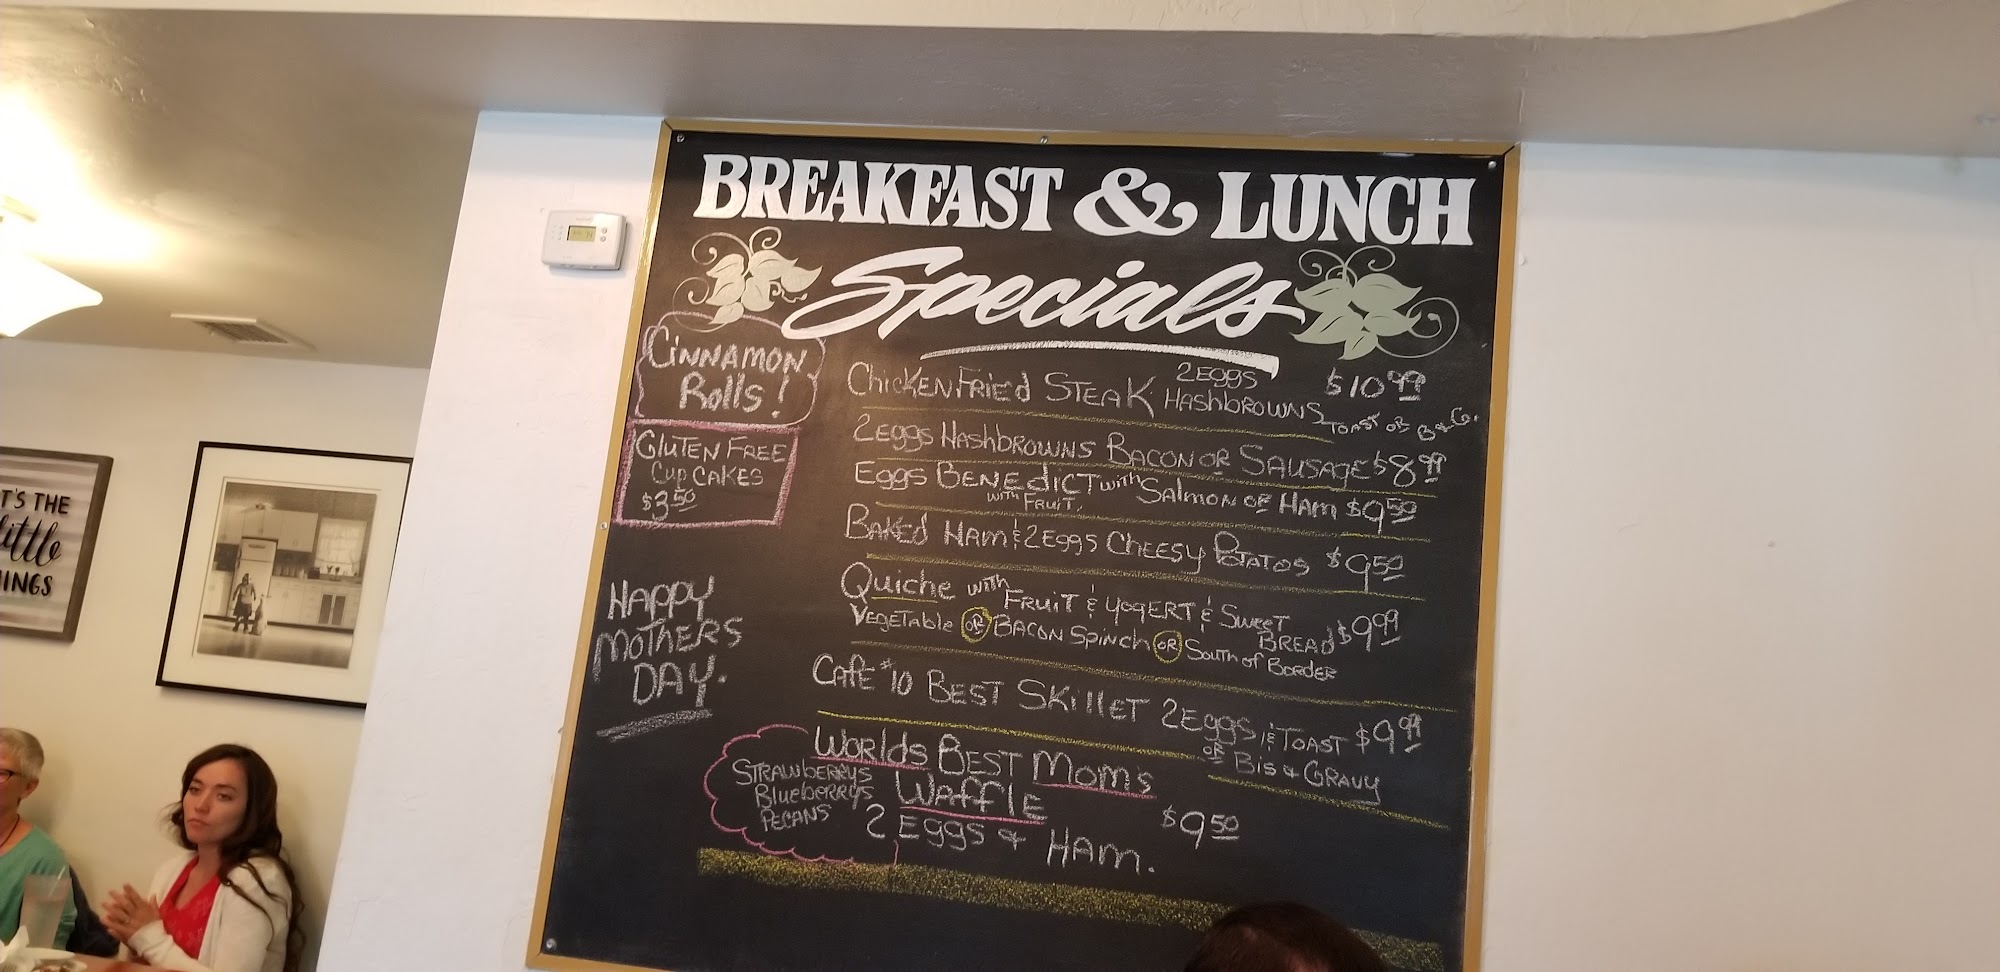 BREAKFAST & LUNCH
Specials
CINNAMON
Rolls!
GLUTEN FREE
CUP CAKES
$3.50
HAPPY
MOTHERS
DAY.
CHICKEN FRIED STEAK 2 EGGS HASHBROWNS $10.99
TOAST OR B & G.
2 EGGS HASHBROWNS BACON OR SAUSAGE $8.99
EGGS BENEDICT WITH SALMON OR HAM $9.50
WITH FRUIT,
BAKED HAM & 2 EGGS CHEESY POTATOS $9.50
QUICHE WITH FRUIT & YOGERT & SWEET BREAD $9.99
VEGETABLE OR BACON SPINCH OR SOUTH OF BORDER
CAFE #10 BEST SKILLET 2 EGGS & TOAST $9.99
OR BIS & GRAVY
WORLDS BEST MOM'S
WAFFLE
STRAWBERRYS
BLUEBERRYS
PECANS
2 EGGS & HAM. $9.50
T'S THE
little
INGS